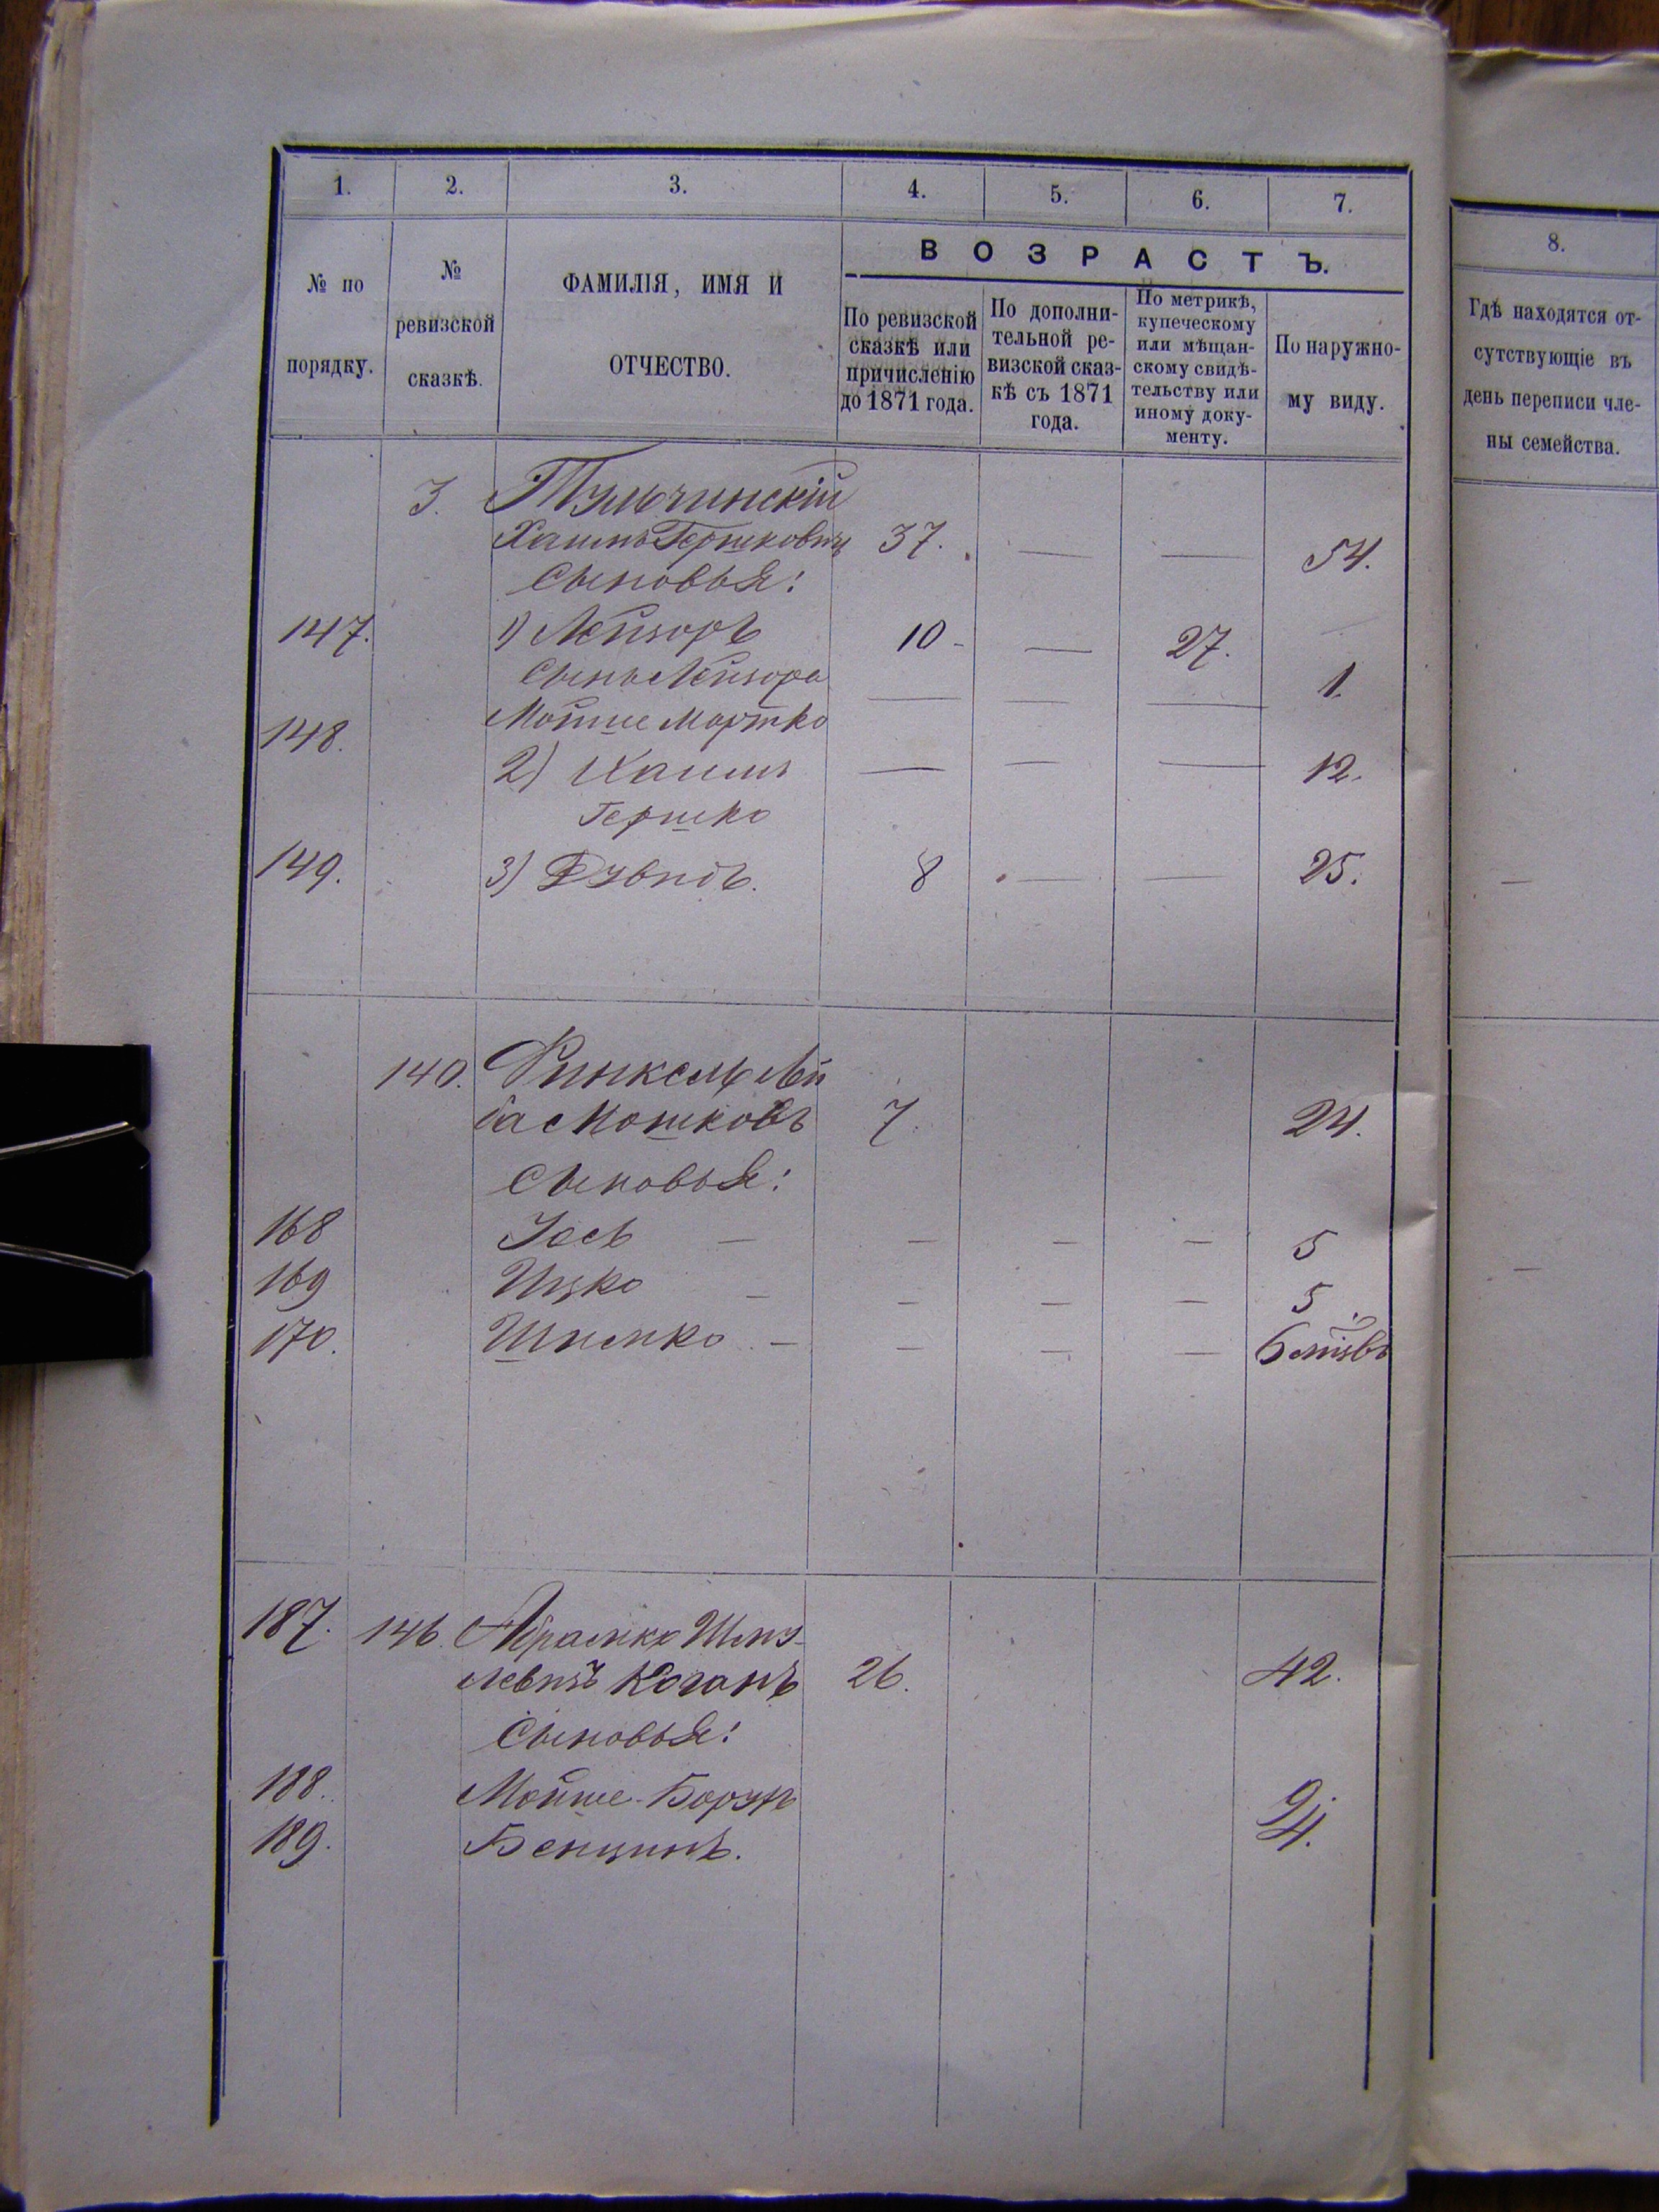 1. 2. 3. 4. 5. 6. 7.
№ по порядку.
№ ревизской сказкѣ.
ФАМИЛІЯ, ИМЯ И ОТЧЕСТВО.
ВОЗРАСТЪ.
По ревизской сказкѣ или причисленію до 1871 года.
По дополнительной ревизской сказкѣ съ 1871 года.
По метрикѣ, купеческому или мѣщанскому свидѣтельству или иному документу.
По наружному виду.
8.
Гдѣ находятся отсутствующіе въ день переписи члены семейства.
3. Тульчинскій
Хаимъ Гершковичъ 37. — — 54.
Сыновья:
147. 1) Лейзоръ 10 - — 27.
Сынъ Лейзора — — — 1.
148. Мойше Мортко
2) Хаимъ — — — 12.
Гершко
149. 3) Дувидъ. 8 — — 25. —
140. Финкель Лей
ба Мошковъ 7. 24.
Сыновья:
168 Іось — — — — 5
169 Ицко — — — — 5 —
170. Шлемко — — — — 6 мѣсцвъ
187. 146. Абрамко Шму-
левичъ Коганъ 26. 42.
Сыновья:
188. Мойше-Борухъ 9.
189. Бенционъ. 4.